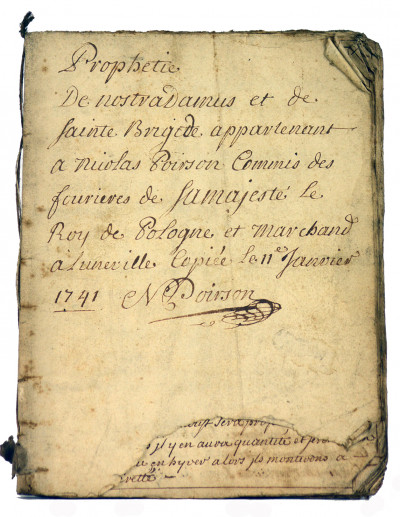 Prophetie
De nostraDamus et de
Sainte Brigide appartenant
a Nicolas Poirson Commis des
fourieres de Samajesté le
Roy de Pologne et marchand
a Luneville Copiée le 11e Janvier
1741 N Poirson
sera
il y en aura quantité et
en hyver alors ils monteront a